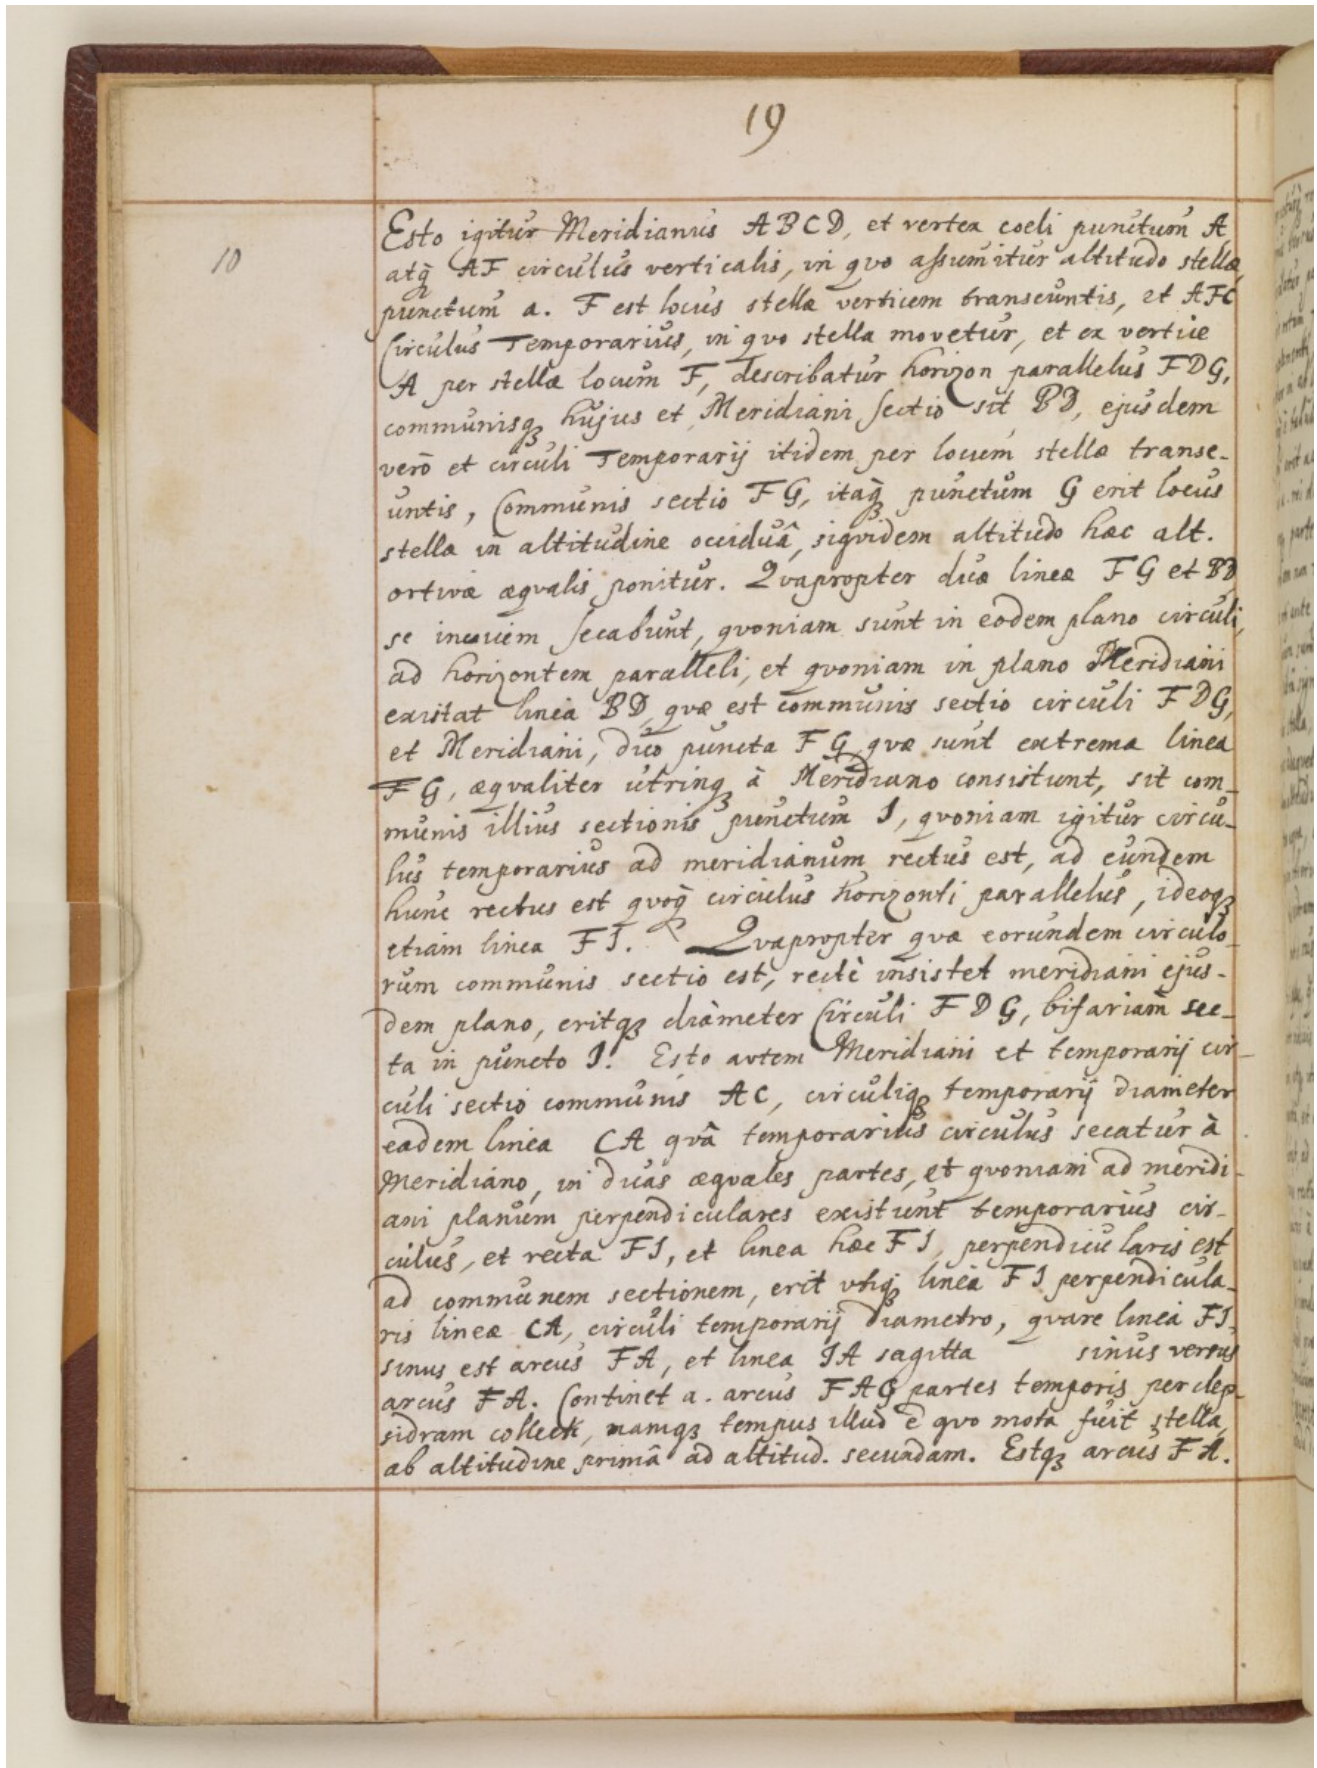 19
10
Esto igitur Meridianus ABCD, et vertex coeli punctum A
atq̃ AF circulus verticalis, in quo assumitur altitudo stellæ,
punctum a. F est locus stellæ verticem transeuntis, et AFC
Circulus Temporarius, in quo stella movetur, et ex vertice
A per stellæ locum F, describatur horizon parallelus FDG,
communisqꝫ hujus et Meridiani sectio sit BD, ejusdem
verò et circuli Temporarij itidem per locum stellæ transe-
untis, Communis sectio FG, itaq̃ punctum G erit locus
stellæ in altitudine occiduâ, siquidem altitudo hæc alt.
ortivæ æqvalis ponitur. Qvapropter duæ lineæ FG et BD
se invicem secabunt, qvoniam sunt in eodem plano circuli,
ad horizontem paralleli, et qvoniam in plano Meridiani
existat linea BD, qvæ est communis sectio circuli FDG,
et Meridiani, duo puncta FG, qvæ sunt extrema linea
FG, æqvaliter utrinqꝫ à Meridiano consistunt, sit com-
munis illius sectionis punctum I, qvoniam igitur circu-
lus temporarius ad meridianum rectus est, ad eundem
hunc rectus est qvoq̃ circulus horizonti parallelus, ideoqꝫ
etiam linea FI. Qvapropter qvæ eorundem circulo-
rum communis sectio est, rectè insistet meridiani ejus-
dem plano, eritqꝫ diameter Circuli FDG, bifariam sec-
ta in puncto I. Esto avtem Meridiani et temporarij cir-
culi sectio communis AC, circuliqꝫ temporarij diameter
eadem linea CA qvâ temporarius circulus secatur à
Meridiano, in duas æqvales partes, et qvoniam ad meridi-
ani planum perpendiculares existunt temporarius cir-
culus, et recta FI, et linea hæc FI, perpendicularis est
ad communem sectionem, erit vtiqꝫ linea FI perpendicula-
ris lineæ CA, circuli temporarij diametro, qvare linea FI,
sinus est arcus FA, et linea IA sagitta sinus versus
arcus FA. Continet a. arcus FAG partes temporis per clep-
sidram, namqꝫ tempus illud è qvo mota fuit stella,
ab altitudine primâ ad altitud. secundam. Estqꝫ arcus FA.